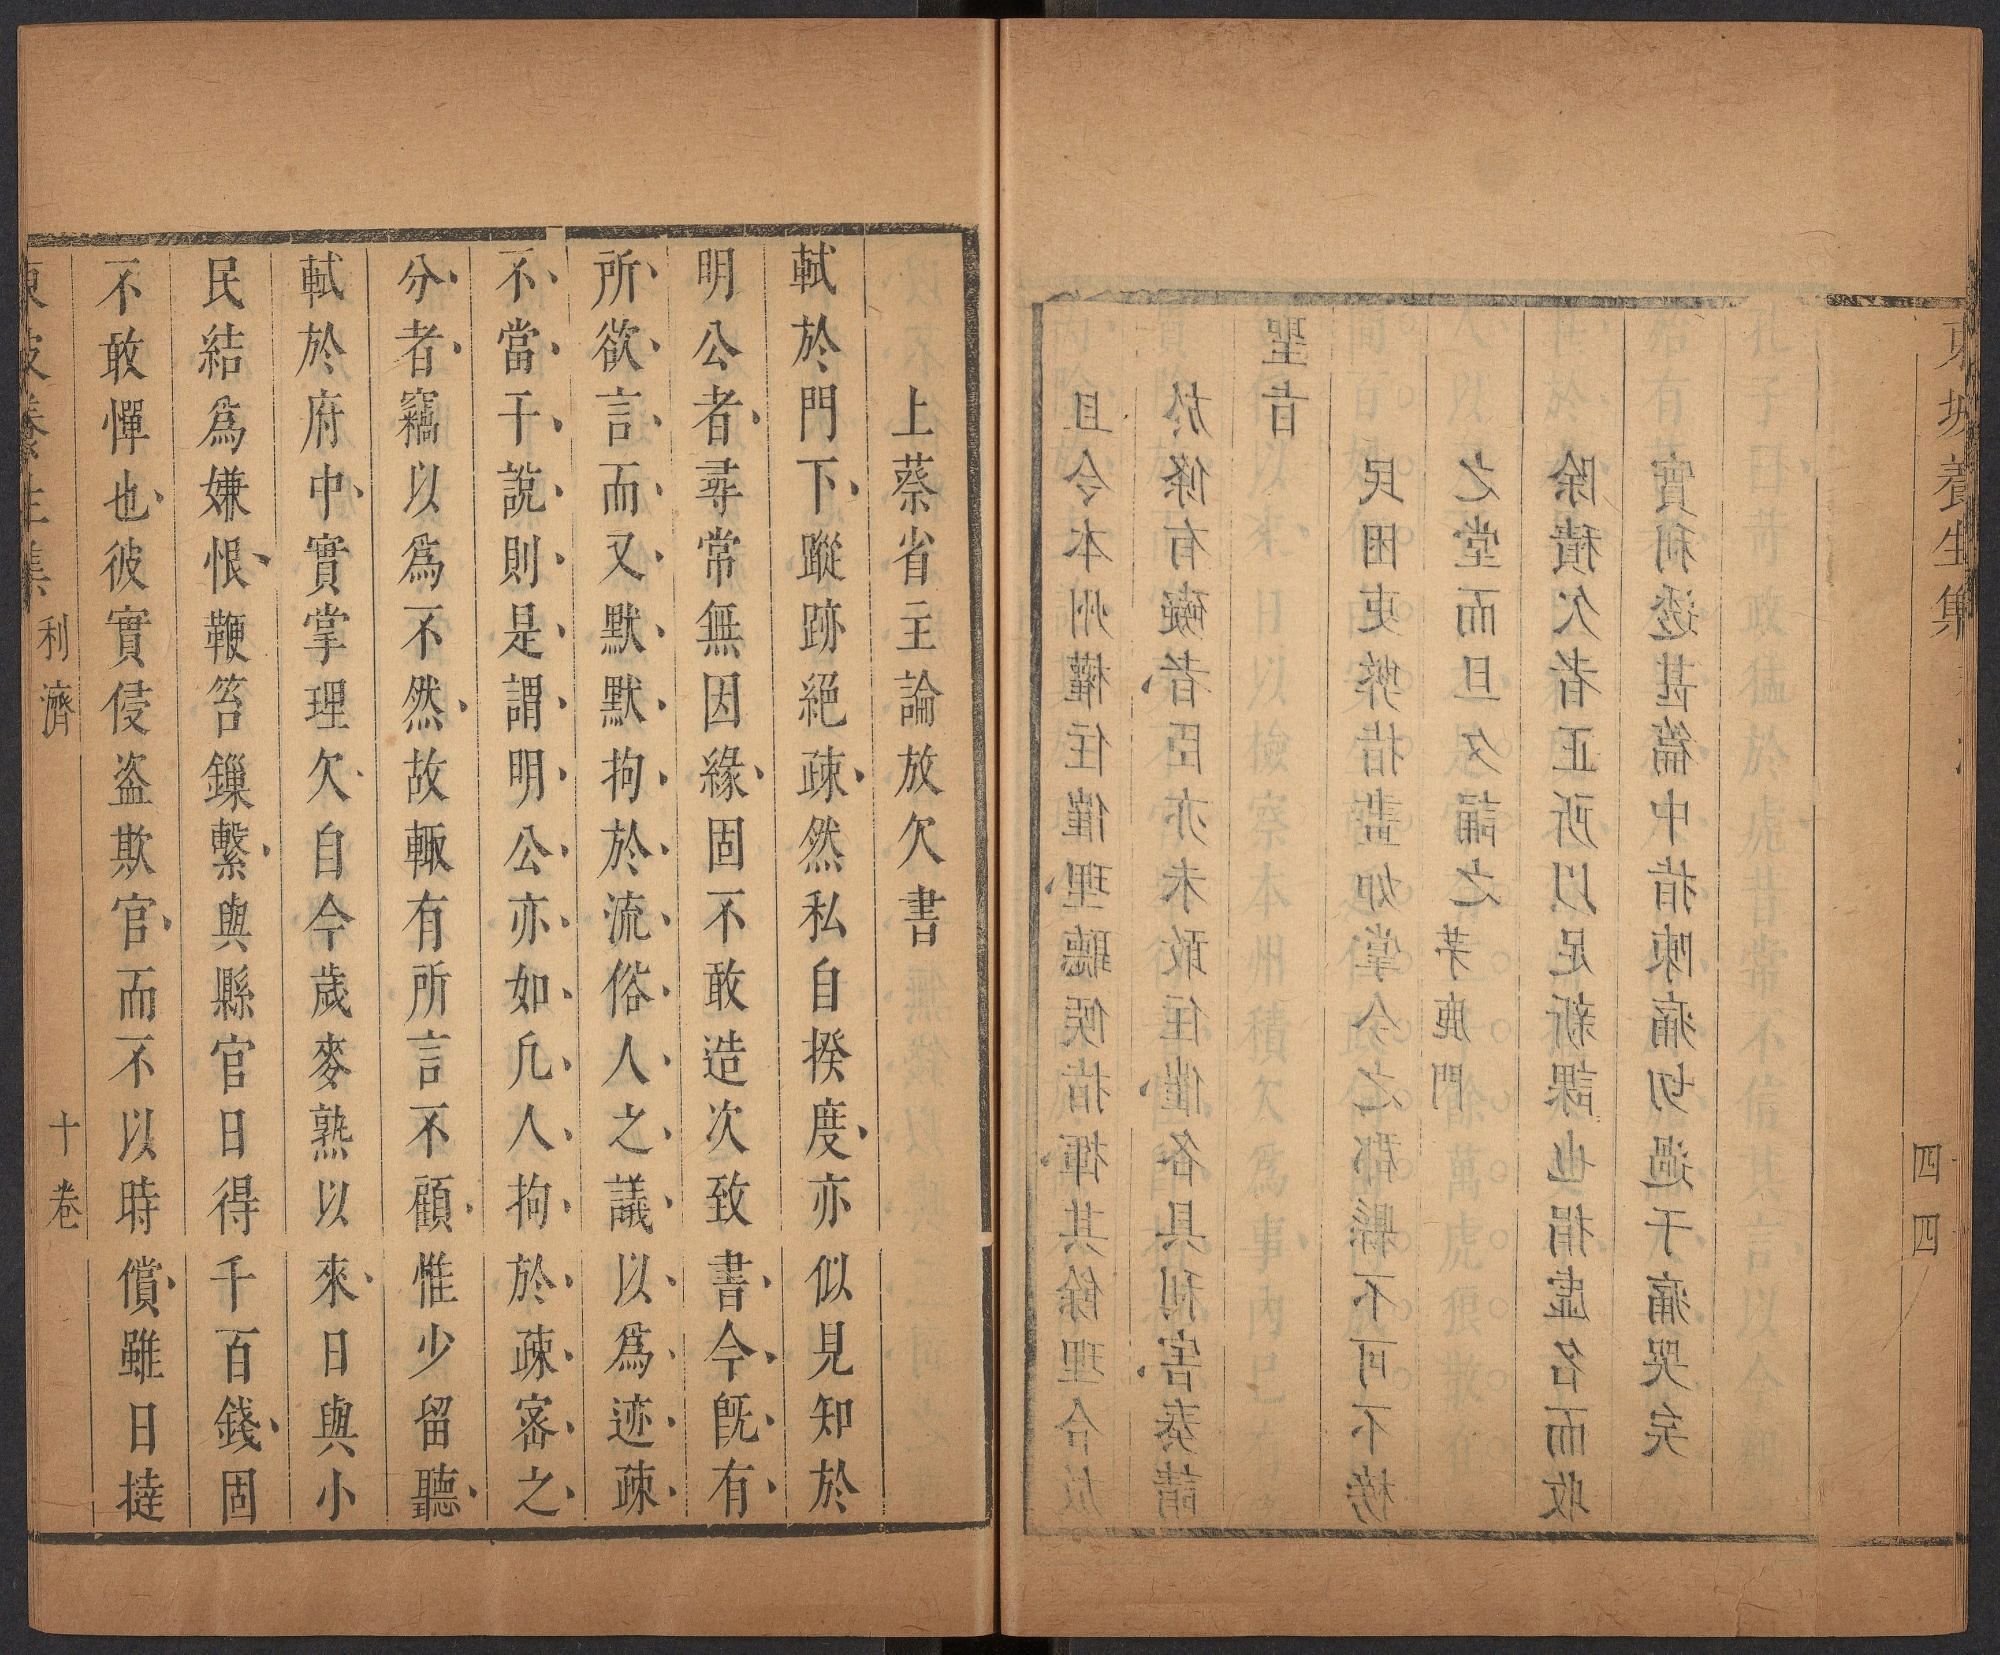 東坡養生集
四四
且令本州權住催理聽候指揮其餘理合放
於條有礙者臣亦未敢住催各具利害奏請
聖旨
民困吏弊指畫如掌今之郡縣不可不榜
之堂而旦夕誦之茅鹿門
除積欠者正所以足新課也捐虛名而收
實利透甚篇中指陳痛切過于痛哭矣
上蔡省主論放欠書
軾於門下、蹤跡絕疎、然私自揆度、亦似見知於
明公者、尋常無因緣、固不敢造次致書、今旣有、
所、欲、言、而、又、默、默、拘、於、流、俗、人、之、議、以、爲、迹、疎、
不、當、干、說、則、是、謂、明、公、亦、如、凡、人、拘、於、疎、宻、之、
分、者、竊以爲不然、故輙有所言不顧、惟少留聽、
軾於府中、實掌理欠、自今歲麥熟以來、日與小
民結爲嫌恨、鞭笞鏁繫、與縣官日得千百錢、固
不敢憚也、彼實侵盜欺官、而不以時償、雖日撻
東坡養生集
利濟
十卷